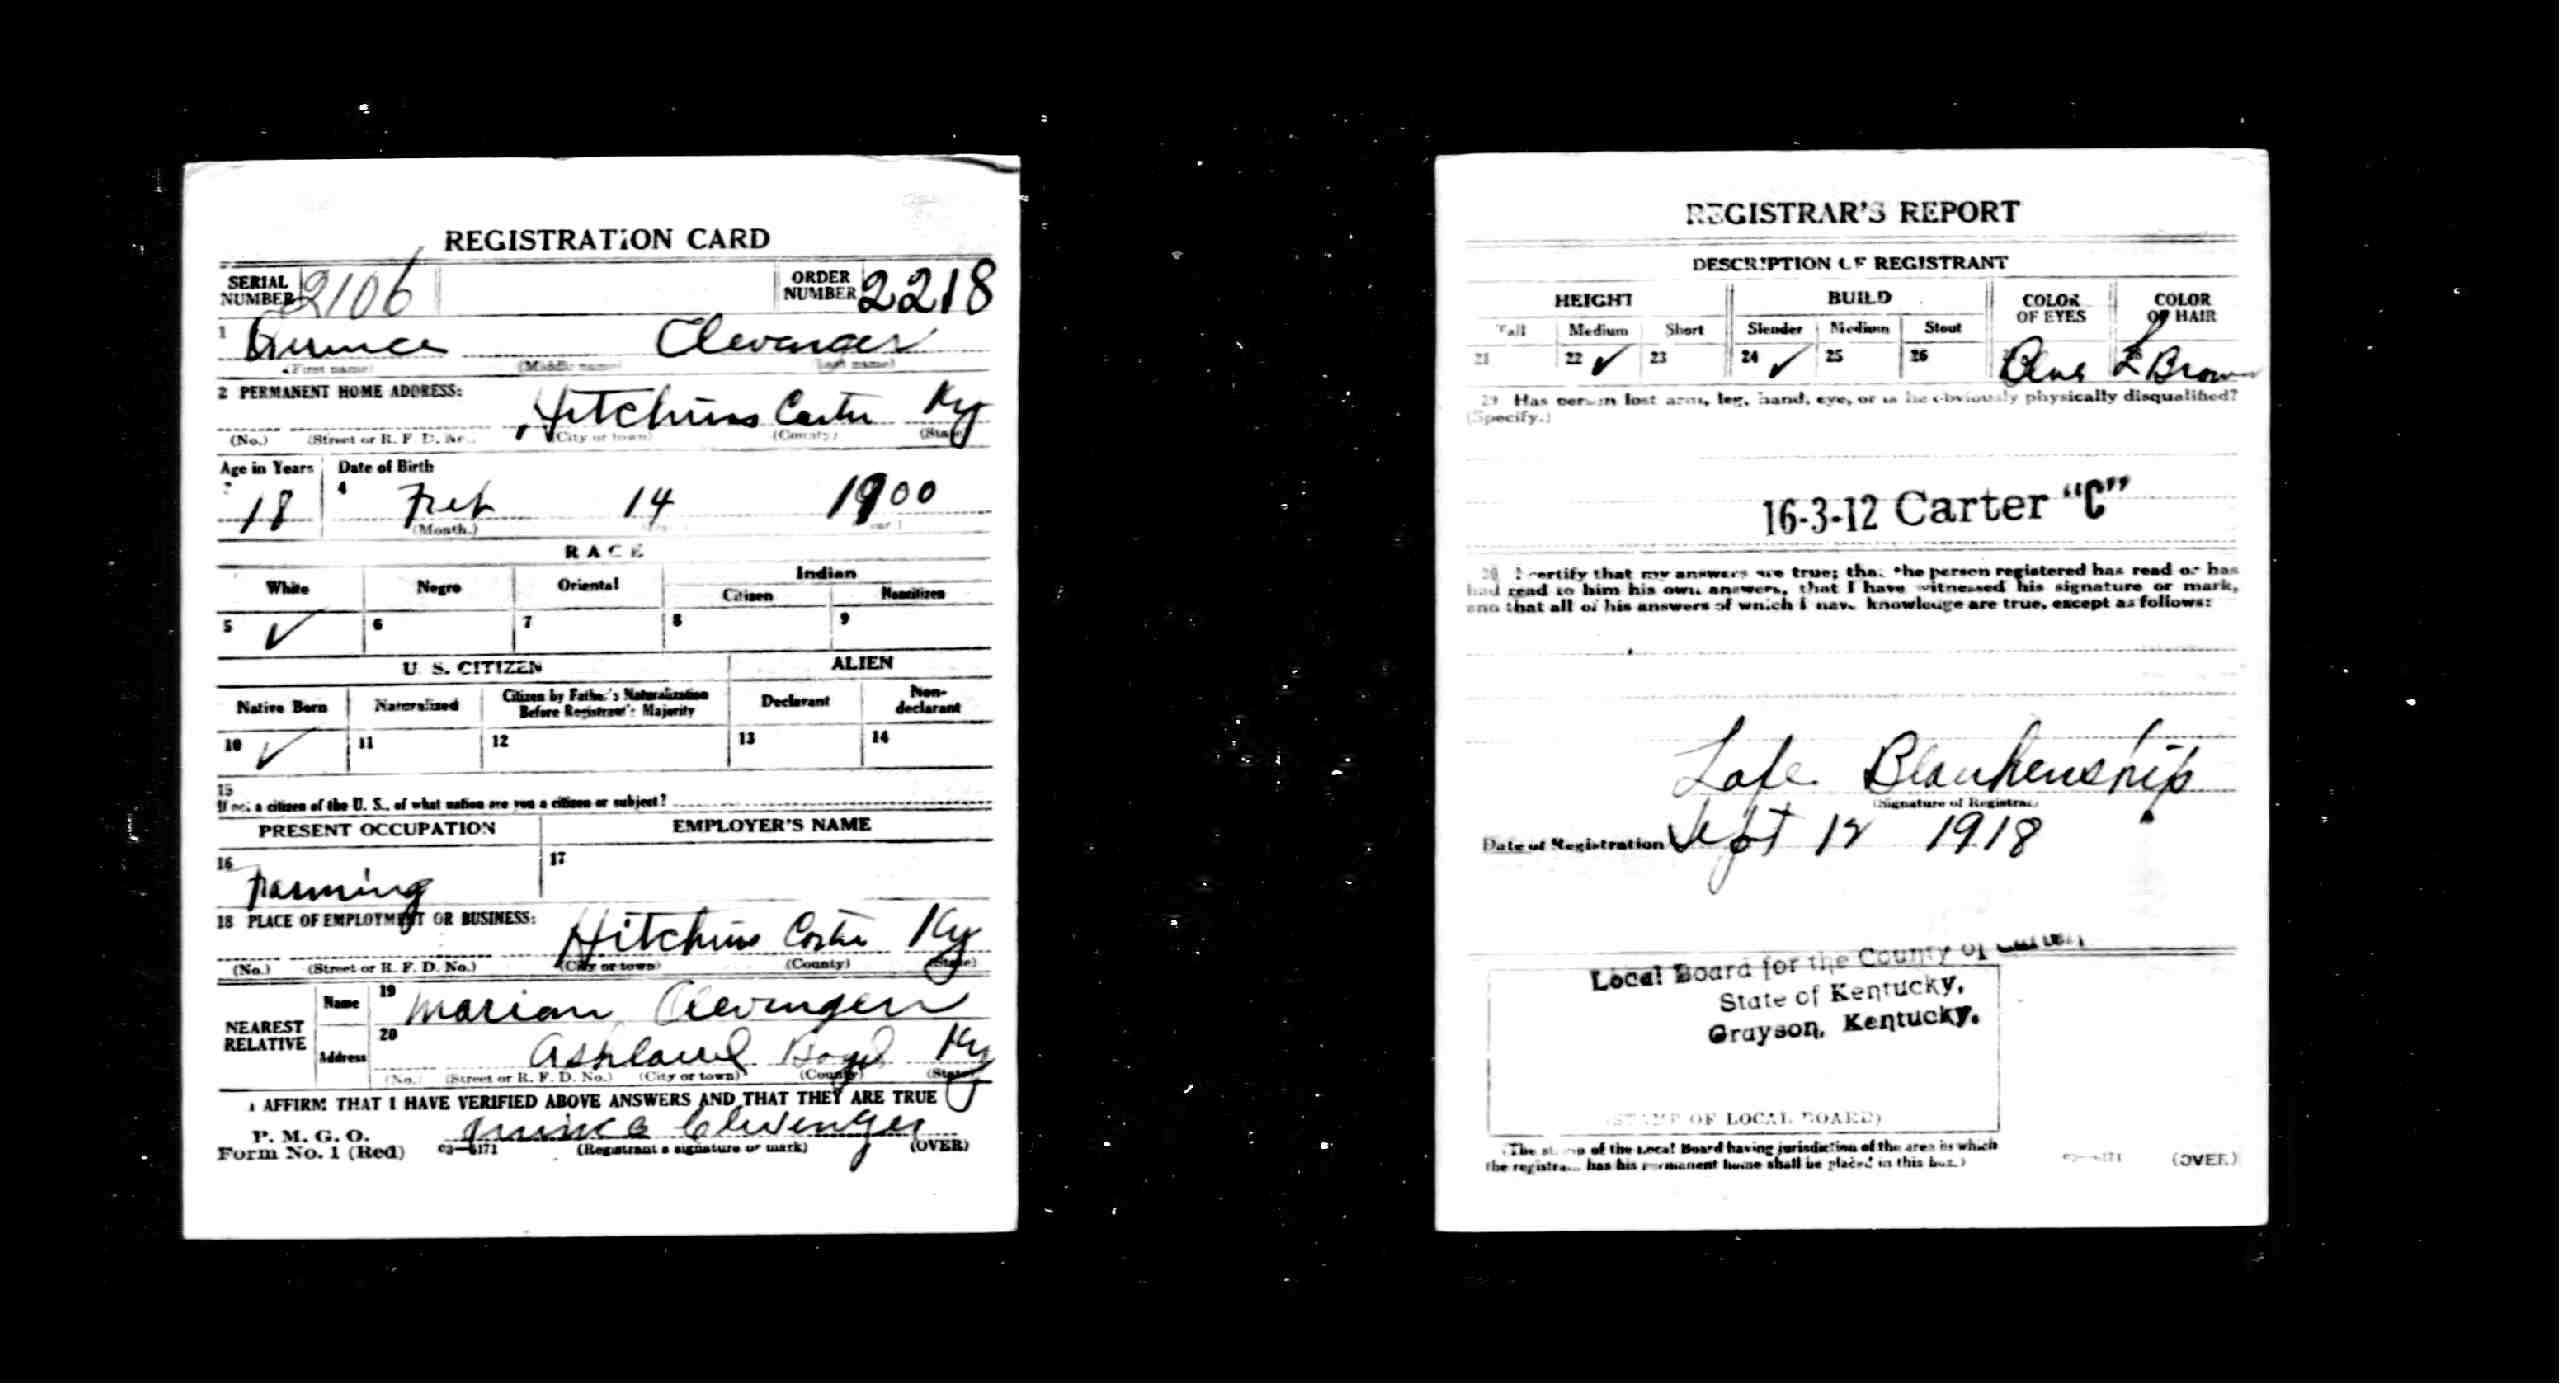 REGISTRATION CARD
SERIAL NUMBER 2106 ORDER NUMBER 2218
1 Clevenger
(First name) (Middle name) (Last name)
2 PERMANENT HOME ADDRESS:
Hitchins Carter Ky
(No.) (Street or R. F. D. No.) (City or town) (County) (State)
Age in Years Date of Birth
3 18 4 Feb 14 1900
(Month.) (Day.) (Year.)
RACE
White Negro Oriental Indian
Citizen Noncitizen
5 ✓ 6 7 8 9
U. S. CITIZEN ALIEN
Native Born Naturalized Citizen by Father's Naturalization Before Registrant's Majority Declarant Non-declarant
10 ✓ 11 12 13 14
15
If not a citizen of the U. S., of what nation are you a citizen or subject?
PRESENT OCCUPATION EMPLOYER'S NAME
16 Farming 17
18 PLACE OF EMPLOYMENT OR BUSINESS:
Hitchins Carter Ky
(No.) (Street or R. F. D. No.) (City or town) (County) (State)
NEAREST RELATIVE Name 19 Marion Clevenger
Address 20 Ashland Boyd Ky
(No.) (Street or R. F. D. No.) (City or town) (County) (State)
I AFFIRM THAT I HAVE VERIFIED ABOVE ANSWERS AND THAT THEY ARE TRUE
P. M. G. O.
Form No. 1 (Red) 03—6171 Clevenger
(Registrant's signature or mark) (OVER)
REGISTRAR'S REPORT
DESCRIPTION OF REGISTRANT
HEIGHT BUILD COLOR OF EYES COLOR OF HAIR
Tall Medium Short Slender Medium Stout
21 22 ✓ 23 24 ✓ 25 26 Blue 28 L Brown
29 Has person lost arm, leg, hand, eye, or is he obviously physically disqualified?
(Specify.)
16-3-12 Carter "C"
30 I certify that my answers are true; that the person registered has read or has
had read to him his own answers, that I have witnessed his signature or mark,
and that all of his answers of which I have knowledge are true, except as follows:
Lafe Blankenship
(Signature of Registrar)
Date of Registration Sept 12 1918
Local Board for the County of Carter,
State of Kentucky,
Grayson, Kentucky.
(STAMP OF LOCAL BOARD)
(The stamp of the Local Board having jurisdiction of the area in which
the registrant has his permanent home shall be placed in this box.)
03—6171 (OVER)